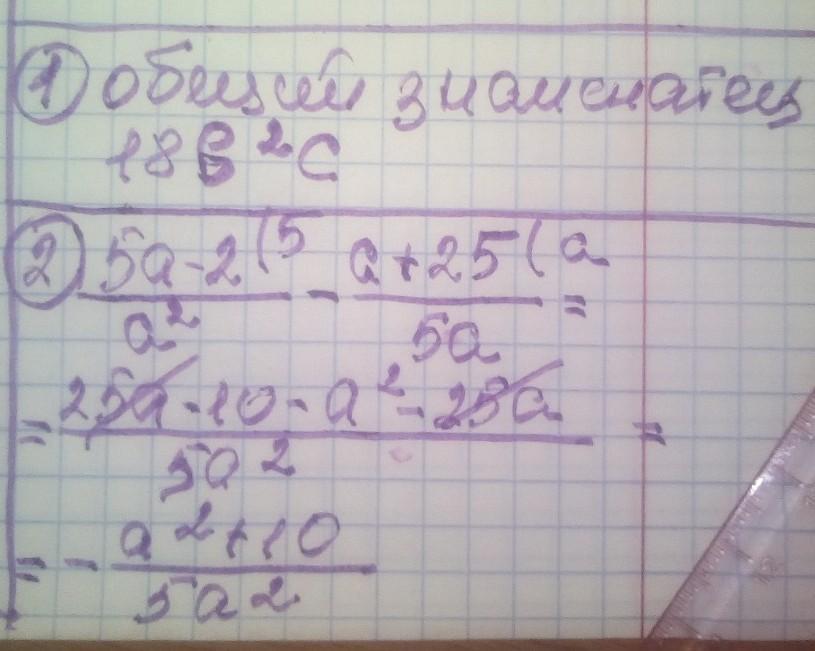 ① общий знаменатель
18b²c
② (5a-2(5)/a² - (a+25(a)/5a =
= (25a-10-a²-25a)/5a² =
= - (a²+10)/5a²